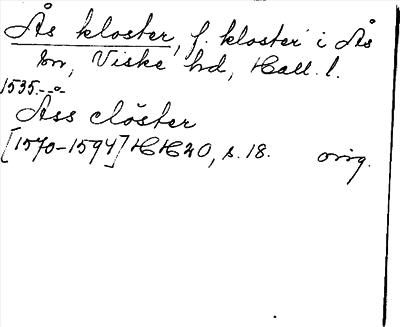 Ås kloster, f. kloster i Ås
sn, Viske hd, Hall. l.
1535
Åss clöster
[1570-1594] HH 20, s. 18. orig.